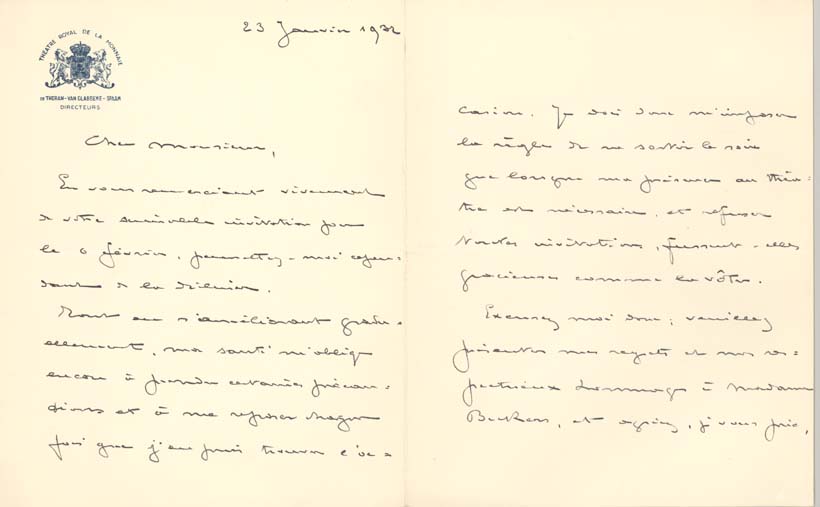 THÉATRE ROYAL DE LA MONNAIE
DE THORAN - VAN GLABBEKE - SPAAK
DIRECTEURS
23 Janvier 1932
Cher Monsieur,
En vous remerciant vivement
de votre aimable invitation pour
le 6 février, permettez-moi cepen=
dant de la décliner.
Tout en s'améliorant gradu=
ellement, ma santé m'oblige
encore à prendre certaines précau=
tions et à me reposer chaque
fois que j'en puis trouver l'oc=
casion. Je dois donc m'imposer
la règle de ne sortir le soir
que lorsque ma présence au théa=
tre est nécessaire, et refuser
toutes invitations, fussent-elles
gracieuses comme la vôtre.
Excusez moi donc; veuillez
présenter mes regrets et mes res=
pectueux hommages à Madame
Beckers, et agréez, je vous prie,